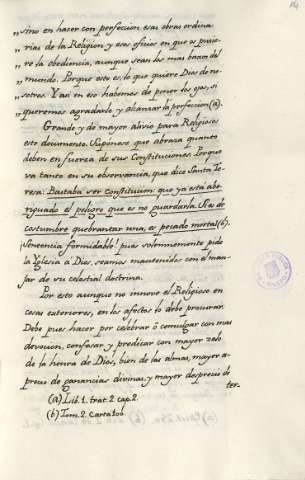 „sino en hacer con perfeccion esas obras ordina-
„rias de la Religion, y esos oficios en que os pusie-
„re la obediencia, aunque sean los mas baxos del
„mundo. Porque esto es, lo que quiere Dios de no-
„sotros. Y asi en eso habemos de poner los ojos, si
„queremos agradarle, y alcanzar la perfeccion (a).
Grande y de mayor alivio para Religiosos
este documento. Suponese que abraza quanto
deben en fuerza de sus Constituciones. Porque
va tanto en su observancia, que dice Santa Te-
resa: Bastaba ser constitucion: que ya está abe-
riguado el peligro que es no guardarla. Si es de
costumbre quebrantar una, es pecado mortal (b).
¡Sentencia formidable! pues solemnemente pide
la Yglesia a Dios, seamos mantenidos con el man-
jar de su celestial doctrina.
Por esto aunque no innove el Religioso en
cosas exteriores, en los afectos lo debe procurar.
Debe pues hacer por celebrar ó comulgar con mas
devocion, confesar y predicar con mayor zelo
de la honra de Dios, bien de las almas, mayor a-
precio de ganancias divinas, y mayor desprecio de
ter-
(a) Lib. 1. trat. 2. cap. 2.
(b) Tom. 2. Carta 106.